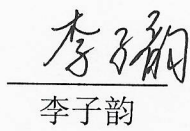 李子韵
李子韵